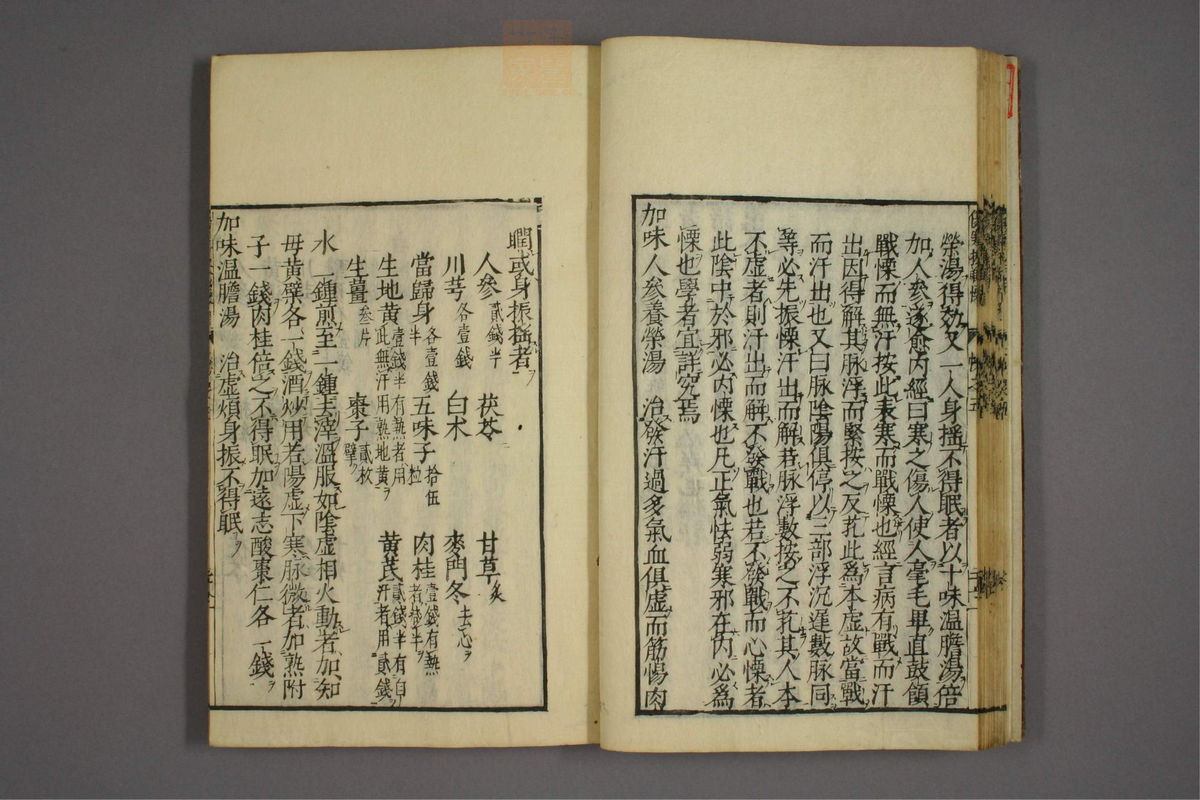 榮湯得効又一人身揺不得眠者以十味温膽湯倍
加人參遂愈内經曰寒之傷人使人毫毛畢直鼓頷
戰慄而無汗按此表寒而戰慄也經言病有戰而汗
出因得解其脉浮而緊按之反芤此爲本虚故當戰
而汗出也又曰脉陰陽俱停以三部浮沉遲數脉同
等必先振慄汗出而解若脉浮數按之不芤其人本
不虚者則汗出而解不發戰也若不發戰而心慄者
此陰中於邪必内慄也凡正氣怯弱寒邪在内必爲
慄也學者宜詳究焉
加味人參養榮湯　治發汗過多氣血俱虚而筋惕肉
瞤或身振揺者
人參貳錢半　茯苓　甘草炙
川芎各壹錢　白朮　麥門冬去心
當歸身各壹錢半　五味子拾伍粒　肉桂壹錢有熱者錢半
生地黄壹錢半有熱者用此無汗用熟地黄　黄芪貳錢半有自汗者用貳錢
生薑叁片　棗子貳枚擘
水二鍾煎至一鍾去滓温服如陰虚相火動者加知
母黄檗各一錢酒炒用若陽虚下寒脉微者加熟附
子一錢肉桂倍之不得眠加遠志酸棗仁各一錢
加味温膽湯　治虚煩身振不得眠